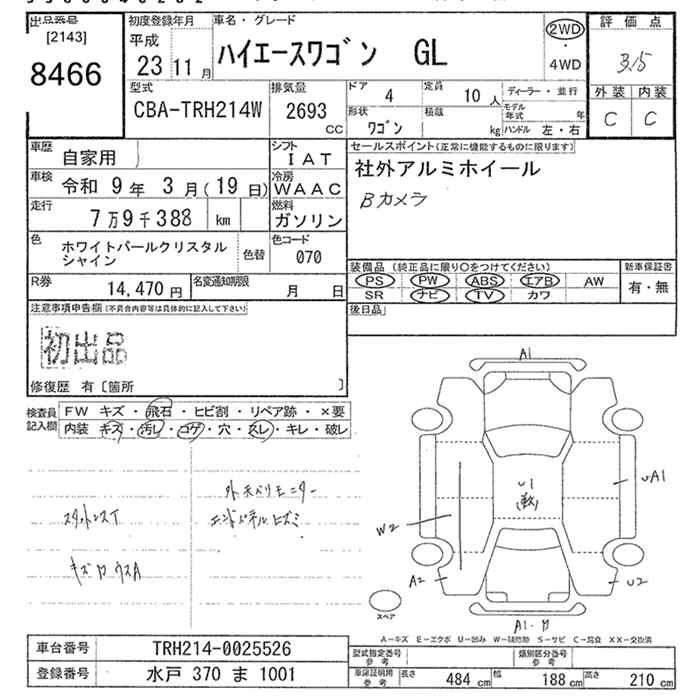 出品番号
[2143]
8466
初度登録年月
平成
23 11月
車名・グレード
ハイエースワゴン GL
2WD
・
4WD
評価点
3.5
外装 内装
C C
型式
CBA-TRH214W
排気量
2693
CC
ドア
4
定員
10人
形状
ワゴン
積載
kg
ディーラー・並行
モデル年式 年
ハンドル 左・右
車歴
自家用
シフト
IAT
車検
令和 9年 3月(19日)
冷房
WAAC
走行
7万9千388 km
燃料
ガソリン
色
ホワイトパールクリスタル
シャイン
色替
色コード
070
R券
14,470円
名変通知期限
月 日
セールスポイント(正常に機能するものに限ります)
社外アルミホイール
Bカメラ
装備品(純正品に限り○をつけてください)
PS PW ABS エアB AW
SR ナビ TV カワ
新車保証書
有・無
後日品
注意事項申告欄(不具合内容等は具体的に記入して下さい)
初出品
修復歴 有〔箇所 〕
検査員
記入欄
FW キズ・飛石・ヒビ割・リペア跡・×要
内装 キズ・汚レ・コゲ・穴・スレ・キレ・破レ
A1
U1
UA1
W2
A2
U2
スペア
A-キズ E-エクボ U-凹み W-補修跡 S-サビ C-腐食 XX-交換済
車台番号
TRH214-0025526
登録番号
水戸 370 ま 1001
型式指定番号
参考
類別区分番号
参考
車庫証明用
参考
長さ
484 cm
幅
188 cm
高さ
210 cm